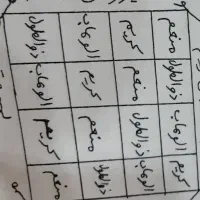 منعم كريم الوهاب ذوالطول
ذوالطول منعم كريم الوهاب
الوهاب ذوالطول منعم كريم
كريم الوهاب ذوالطول منعم